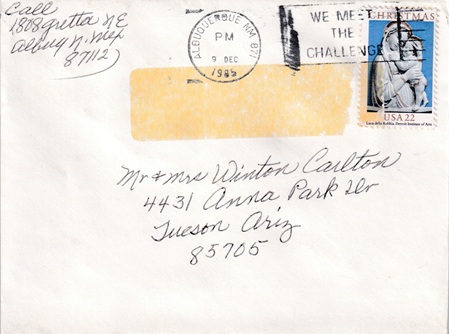 Call
1808 gretta NE
Albuq N. Mex
87112
ALBUQUERQUE NM 871
PM
9 DEC
1985
WE MEET
THE
CHALLENGE
CHRISTMAS
USA 22
Luca della Robbia, Detroit Institute of Arts
Mr & Mrs Winton Carlton
4431 Anna Park Dr
Tucson Ariz
85705